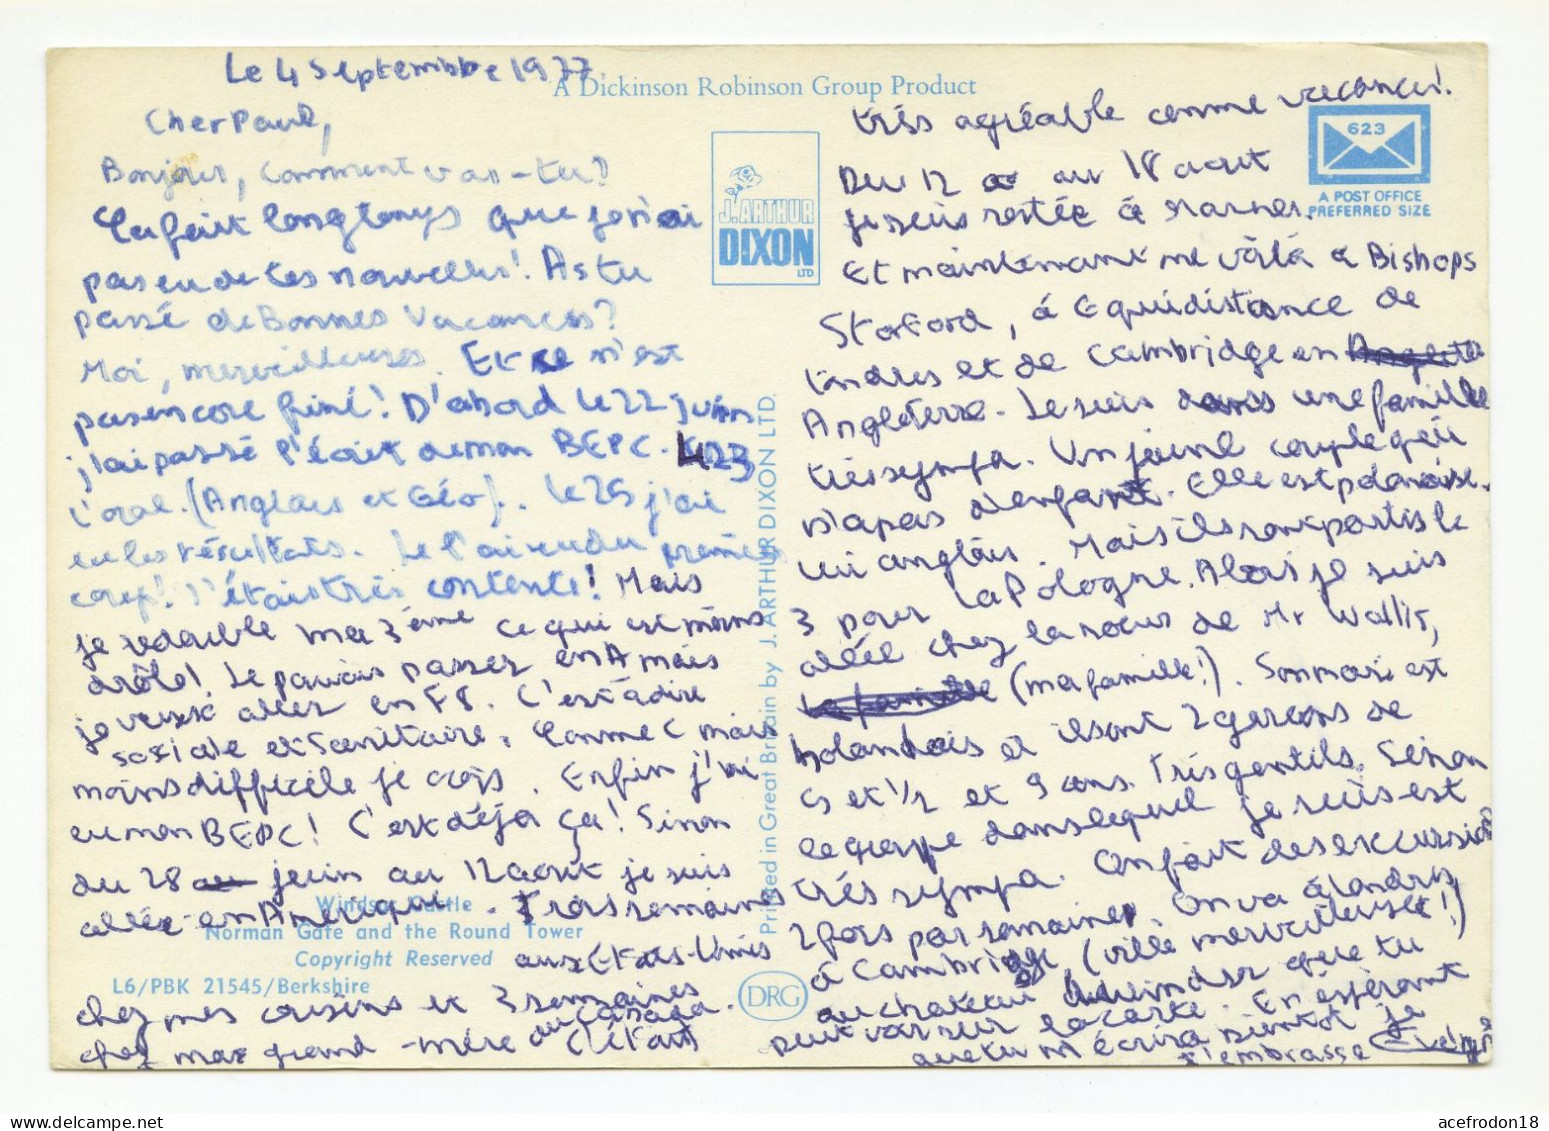 Le 4 Septembre 1977.
A Dickinson Robinson Group Product
Cher Paul,
Bonjour, comment vas-tu?
ça fait longtemps que je n'ai
pas eu de tes nouvelles! As tu
passé de Bonnes Vacances?
Moi, merveilleuses. Et ce n'est
pas encore finé! D'abord le 22 juin
j'ai passé l'écrit de mon BEPC. le 23
l'oral. (Anglais et Géo). le 25 j'ai
eu les résultats. Je l'ai eu du premier
coup! J'étais très contente! Mais
je redouble ma 3ème ce qui est moins
drôle! Je pouvais passer en A mais
je veux aller en F8. C'est à dire
sociale et Sanitaire. Comme C mais
moins difficile je crois. Enfin j'ai
eu mon BEPC! C'est déja ça! Sinon
du 28 juin au 12 aout je suis
allée en Amérique. Trois semaines
aux Etats-Unis
chez mes cousins et 3 semaines
au Canada.
chez ma grand-mère C'était
Windsor Castle
Norman Gate and the Round Tower
Copyright Reserved
L6/PBK 21545/Berkshire
J. ARTHUR
DIXON
LTD
Printed in Great Britain by J. ARTHUR DIXON LTD.
DRG
623
A POST OFFICE
PREFERRED SIZE
très agréable comme vacances!
Du 12 au 18 aout
je suis restée à
Et maintenant me voilà à Bishops
Stortford, à Equidistance de
Londres et de Cambridge en
Angleterre. Je suis dans une famille
très sympa. Un jeune couple qui
n'a pas d'enfant. Elle est polonaise.
lui anglais. Mais ils sont partis le
3 pour la Pologne. Alors je suis
allée chez la soeur de Mr Wallis,
la famille (ma famille!). Son mari est
holandais et ils ont 2 garçons de
et 1/2 et 9 ans. Très gentils. Sinon
le groupe dans lequel je suis est
très sympa. On fait des excursions
2 fois par semaine. On va à Londres
à Cambridge, (ville merveilleuse!)
au chateau de windsor que tu
peut voir sur la carte. En espérant
que tu m'écrira bientot je
t'embrasse Evelyne
acefrodon18